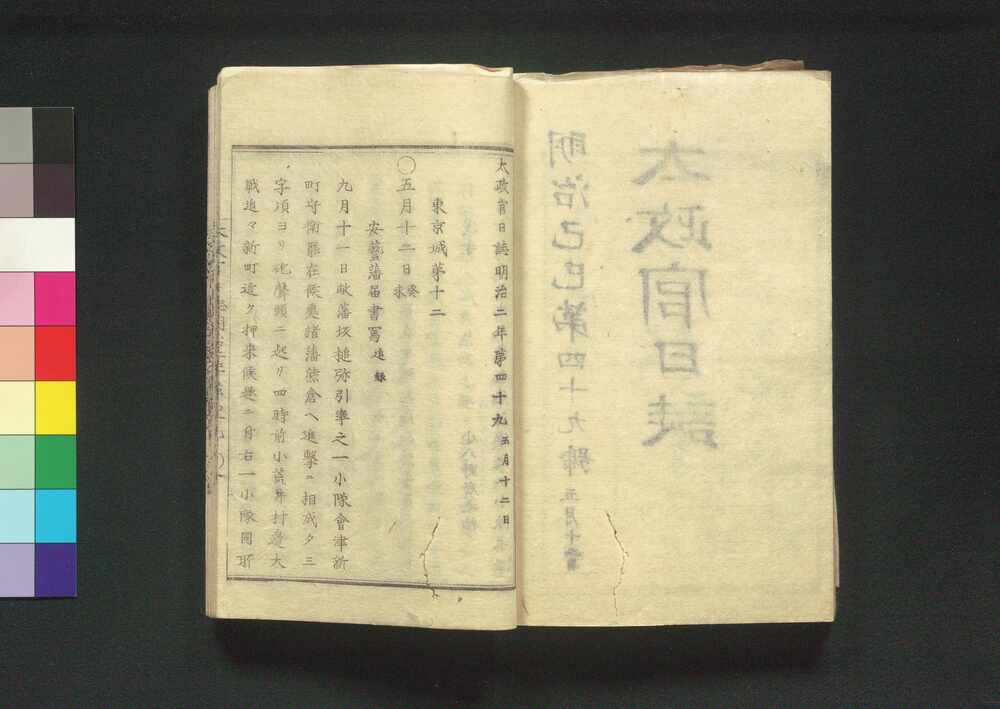 太政官日誌
明治己巳第四十九號
太政官日誌明治二年第四十九 五月十二日
東京城第十二
〇五月十二日癸未
安藝藩届書寫追録
九月十一日敝藩坂槌弥引率之一小隊會津新
町守衛罷在候奥諸藩熊倉ヘ進撃ニ相成夕三
字頃ヨリ砲聲頻ニ起リ四時前小荒井村邊大
戦追々新町近ク押来候趣ニ付右一小隊同所